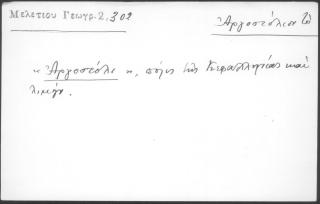 Μελετίου Γεωγρ. 2,302
Ἀργοστόλιον τὸ
« Ἀργοστόλι », πόλις τῆς Κεφαλληνίας καὶ
λιμήν.